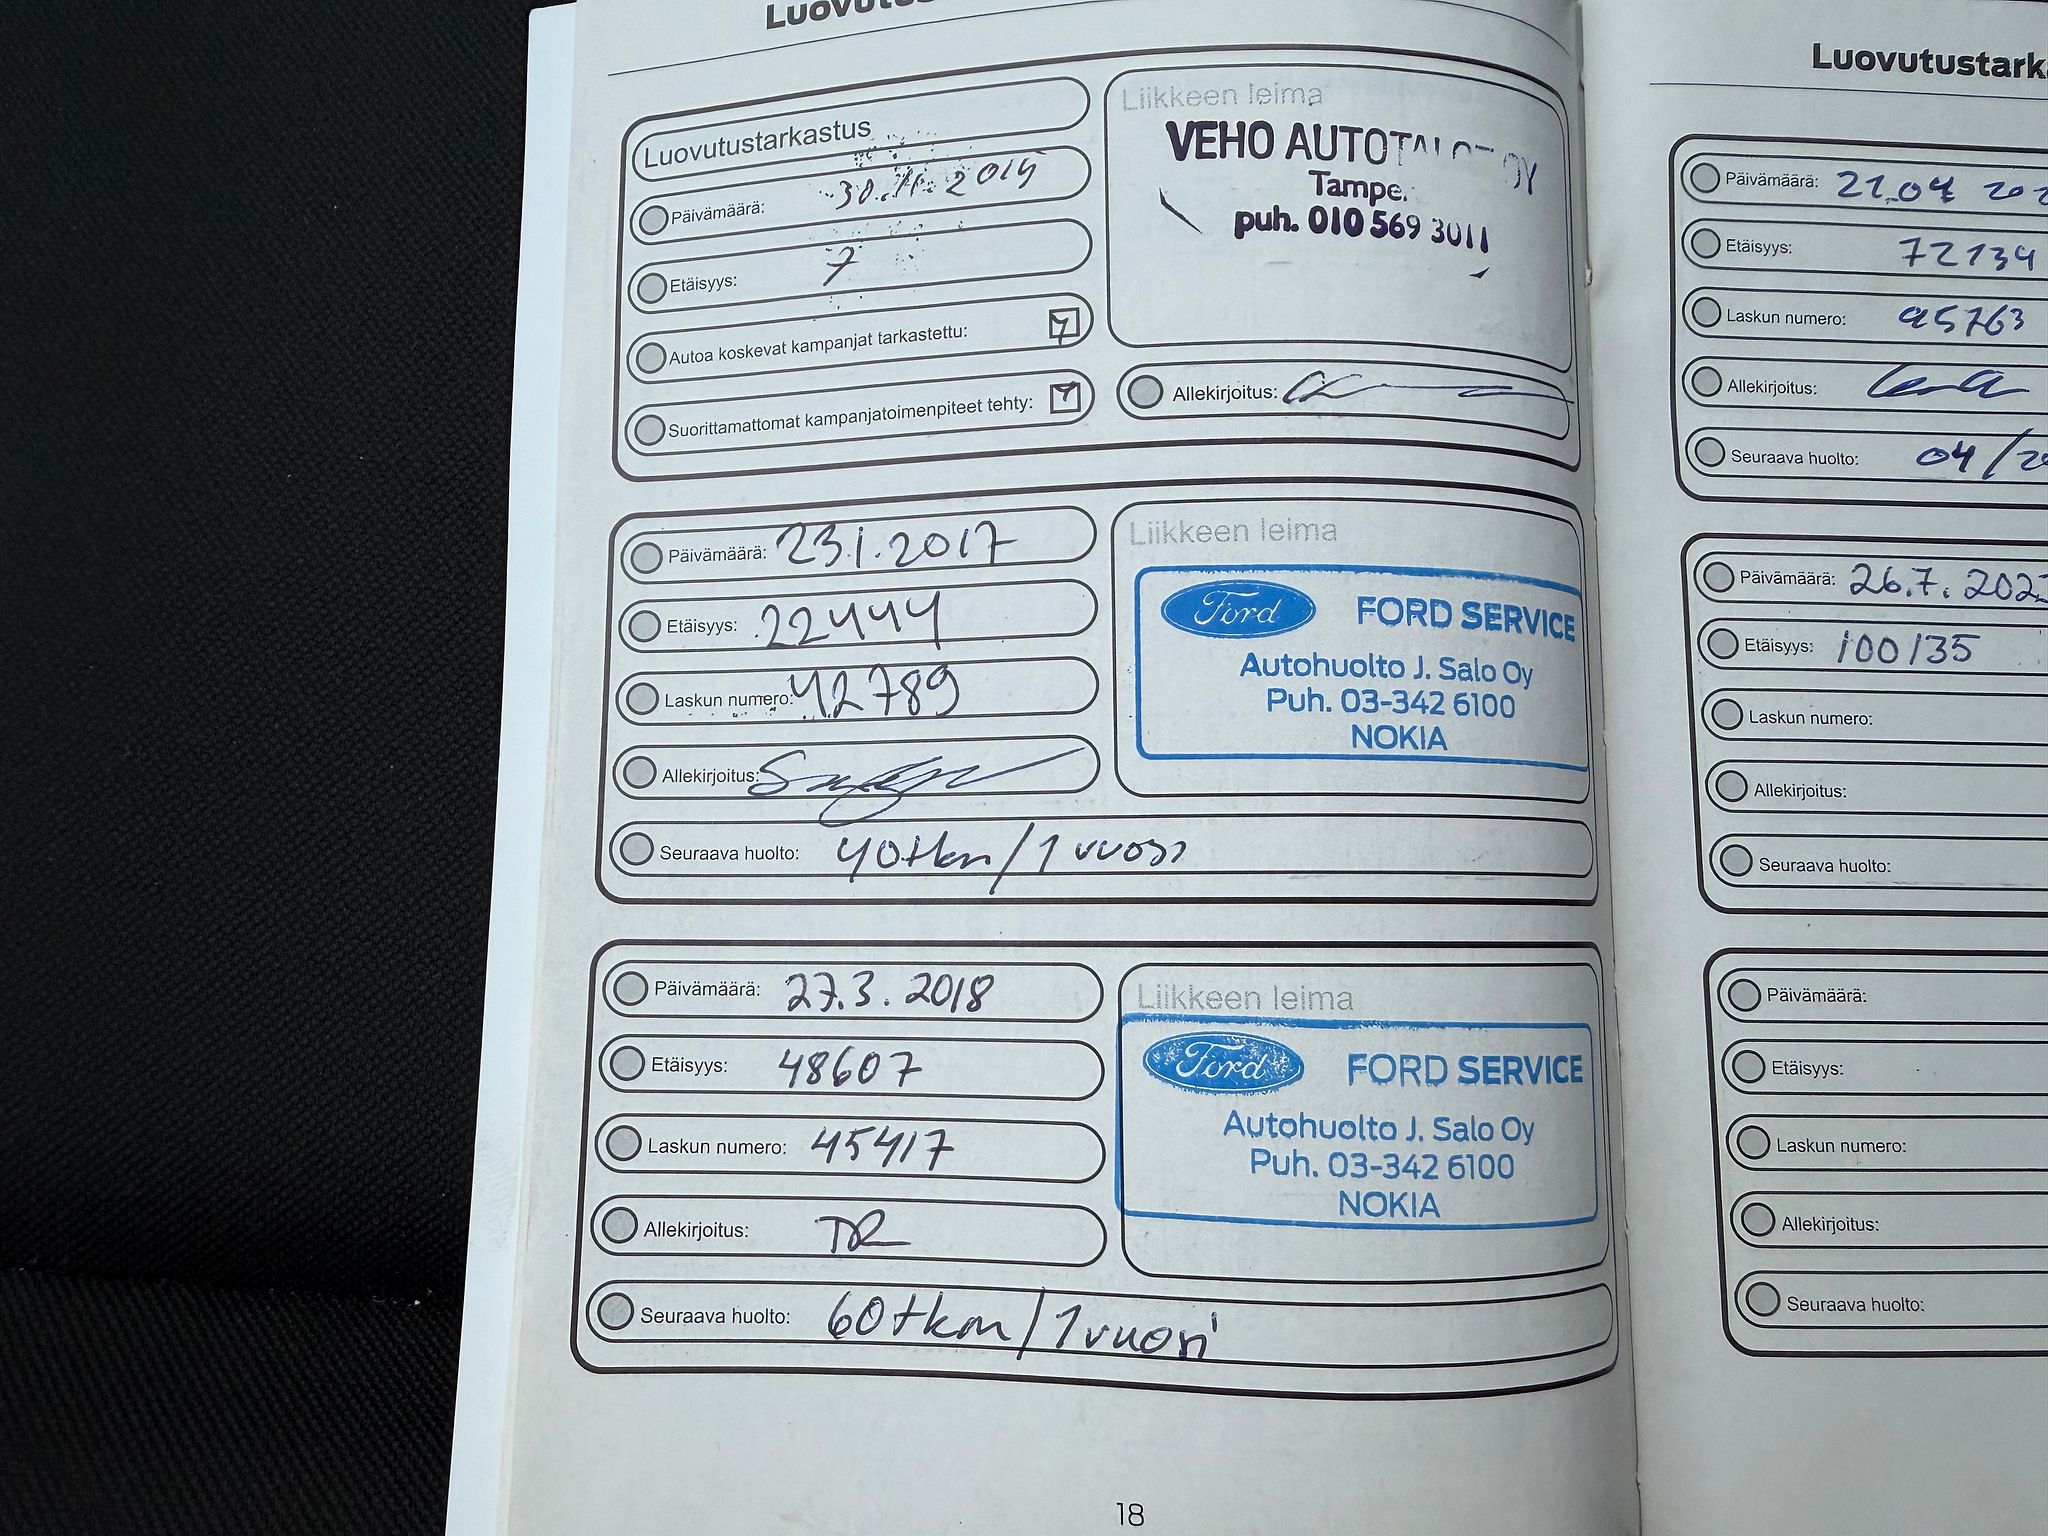 Luovutustarkastus
Päivämäärä: 30.11.2015
Etäisyys: 7
Autoa koskevat kampanjat tarkastettu:
Suorittamattomat kampanjatoimenpiteet tehty:
Liikkeen leima
VEHO AUTOTALOT OY
Tampe.
puh. 010 569 3011
Allekirjoitus:
Päivämäärä: 23.1.2017
Etäisyys: 22444
Laskun numero: 42789
Allekirjoitus:
Seuraava huolto: 40tkm/1 vuosi
Liikkeen leima
Ford FORD SERVICE
Autohuolto J. Salo Oy
Puh. 03-342 6100
NOKIA
Päivämäärä: 27.3.2018
Etäisyys: 48607
Laskun numero: 45417
Allekirjoitus:
Seuraava huolto: 60tkm/1 vuosi
Liikkeen leima
Ford FORD SERVICE
Autohuolto J. Salo Oy
Puh. 03-342 6100
NOKIA
18
Luovutustark
Päivämäärä: 21.04 202
Etäisyys: 72134
Laskun numero: 95763
Allekirjoitus:
Seuraava huolto: 04/20
Päivämäärä: 26.7.202
Etäisyys: 100135
Laskun numero:
Allekirjoitus:
Seuraava huolto:
Päivämäärä:
Etäisyys:
Laskun numero:
Allekirjoitus:
Seuraava huolto: